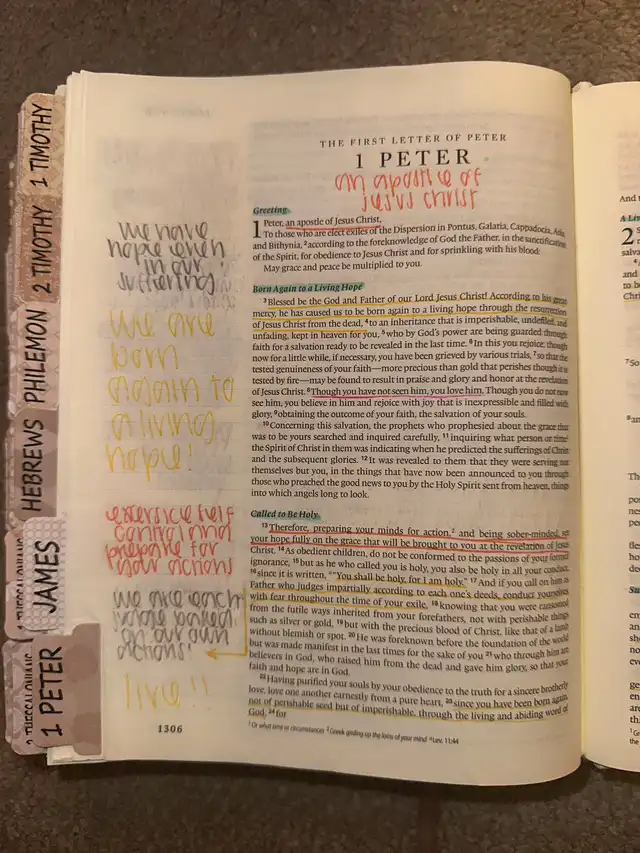 1 TIMOTHY
2 TIMOTHY
PHILEMON
HEBREWS
JAMES
1 PETER
we have
hope even
in our
sufferings
we are
born
again to
a living
hope!
exersice self
control and
prepare for
your actions
we are each
judge based
on our own
actions!
live!!
1306
THE FIRST LETTER OF PETER
1 PETER
an apostle of
jesus christ
Greeting
1 Peter, an apostle of Jesus Christ,
To those who are elect exiles of the Dispersion in Pontus, Galatia, Cappadocia, Asia,
and Bithynia, 2 according to the foreknowledge of God the Father, in the sanctification
of the Spirit, for obedience to Jesus Christ and for sprinkling with his blood:
May grace and peace be multiplied to you.
Born Again to a Living Hope
3 Blessed be the God and Father of our Lord Jesus Christ! According to his great
mercy, he has caused us to be born again to a living hope through the resurrection
of Jesus Christ from the dead, 4 to an inheritance that is imperishable, undefiled, and
unfading, kept in heaven for you, 5 who by God's power are being guarded through
faith for a salvation ready to be revealed in the last time. 6 In this you rejoice, though
now for a little while, if necessary, you have been grieved by various trials, 7 so that the
tested genuineness of your faith—more precious than gold that perishes though it is
tested by fire—may be found to result in praise and glory and honor at the revelation
of Jesus Christ. 8 Though you have not seen him, you love him. Though you do not now
see him, you believe in him and rejoice with joy that is inexpressible and filled with
glory, 9 obtaining the outcome of your faith, the salvation of your souls.
10 Concerning this salvation, the prophets who prophesied about the grace that
was to be yours searched and inquired carefully, 11 inquiring what person or time
the Spirit of Christ in them was indicating when he predicted the sufferings of Christ
and the subsequent glories. 12 It was revealed to them that they were serving not
themselves but you, in the things that have now been announced to you through
those who preached the good news to you by the Holy Spirit sent from heaven, things
into which angels long to look.
Called to Be Holy
13 Therefore, preparing your minds for action, 2 and being sober-minded, set
your hope fully on the grace that will be brought to you at the revelation of Jesus
Christ. 14 As obedient children, do not be conformed to the passions of your former
ignorance, 15 but as he who called you is holy, you also be holy in all your conduct,
16 since it is written, "You shall be holy, for I am holy." 17 And if you call on him as
Father who judges impartially according to each one's deeds, conduct yourselves
with fear throughout the time of your exile, 18 knowing that you were ransomed
from the futile ways inherited from your forefathers, not with perishable things
such as silver or gold, 19 but with the precious blood of Christ, like that of a lamb
without blemish or spot. 20 He was foreknown before the foundation of the world
but was made manifest in the last times for the sake of you 21 who through him are
believers in God, who raised him from the dead and gave him glory, so that your
faith and hope are in God.
22 Having purified your souls by your obedience to the truth for a sincere brotherly
love, love one another earnestly from a pure heart, 23 since you have been born again,
not of perishable seed but of imperishable, through the living and abiding word of
God; 24 for
1 Or what time or circumstances 2 Greek girding up the loins of your mind a Lev. 11:44